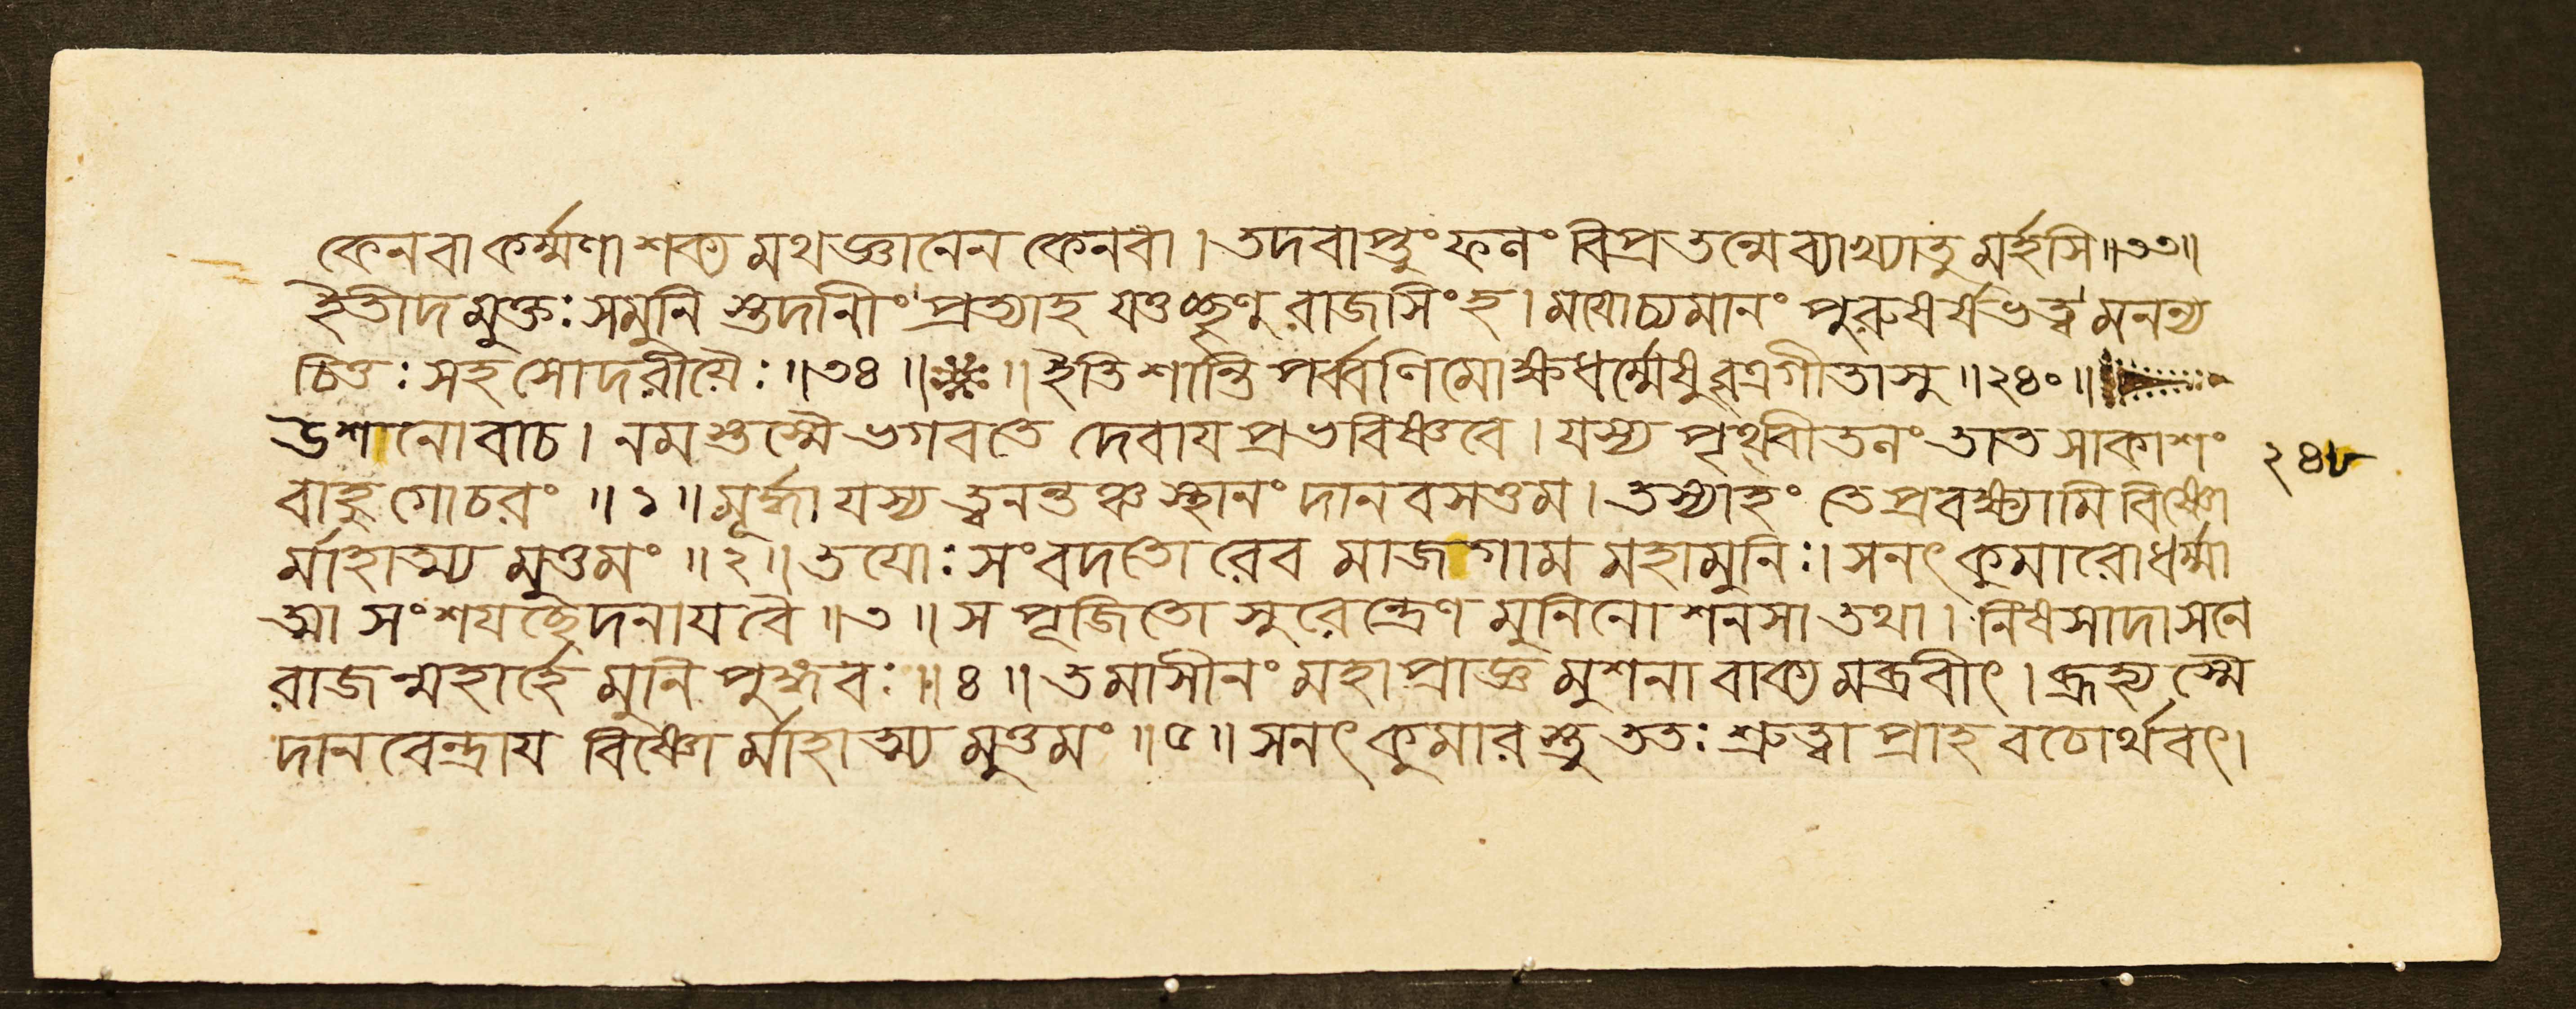 কেনবা কর্ম্মণা শক্য মথ জ্ঞানেন কেনবা । তদবাপ্তুং ফলং বিপ্র তন্মে ব্যাখ্যাতু মর্হসি ॥ ৩৩ ॥
ইতীদ মুক্তঃ সমুনি স্তদানীং প্রত্যাহ যত্তচ্ছৃণু রাজসিংহ । ময়োচ্যমানং পুরুষর্ষভ ত্ব মনন্য
চিত্তঃ সহ সোদরীয়ৈঃ ॥ ৩৪ ॥ ❋ ॥ ইতি শান্তি পর্ব্বণি মোক্ষধর্ম্মেষু বৃত্রগীতাসু ॥ ২৪০ ॥
উশানোবাচ । নম স্তস্মৈ ভগবতে দেবায প্রভবিষ্ণবে । যস্য পৃথ্বীতলং তাত সাকাশং
বাহুগোচরং ॥ ১ ॥ মূর্দ্ধা যস্য ত্বনন্তঞ্চ স্থানং দানবসত্তম । তস্যাহং তে প্রবক্ষ্যামি বিষ্ণো
র্মাহাত্ম্য মুত্তমং ॥ ২ ॥ তযোঃ সংবদতো রেব মাজগাম মহামুনিঃ । সনৎকুমারো ধর্ম্মা
ত্মা সংশযচ্ছেদনায বৈ ॥ ৩ ॥ স পূজিতো সুরেন্দ্রেণ মুনিনোশনসা তথা । নিষসাদাসনে
রাজন্মহার্হে মুনিপুঙ্গবঃ ॥ ৪ ॥ তমাসীনং মহাপ্রাজ্ঞ মুশনা বাক্য মব্রবীৎ । ব্রূহ্যস্মৈ
দানবেন্দ্রায বিষ্ণো র্মাহাত্ম্য মুত্তমং ॥ ৫ ॥ সনৎকুমারস্তু ততঃ শ্রুত্বা প্রাহ বচোর্থবৎ ।
২৪৮